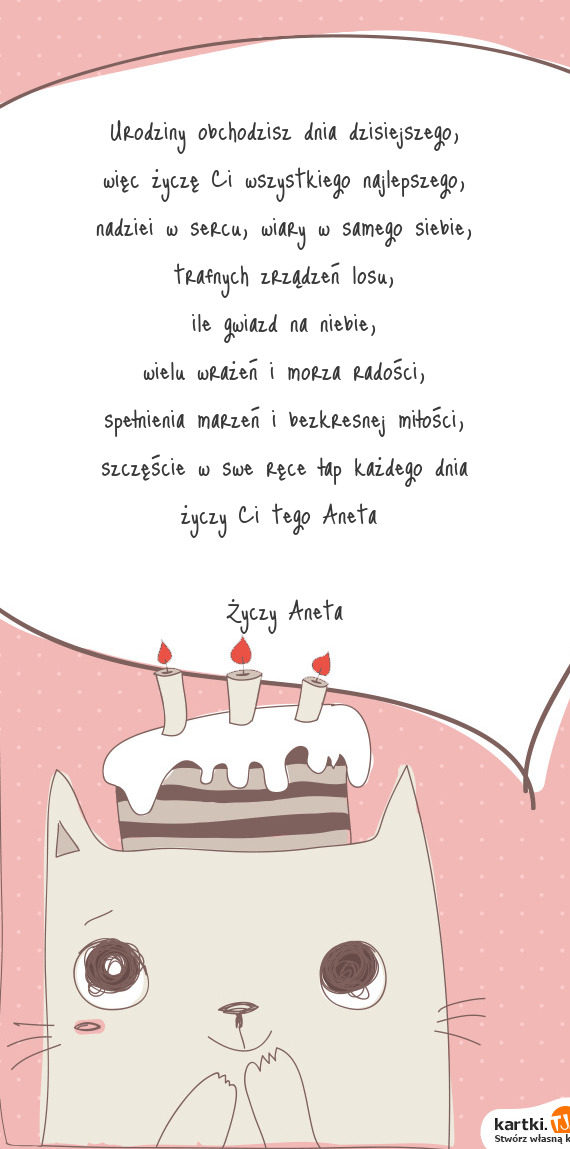 Urodziny obchodzisz dnia dzisiejszego,
więc życzę Ci wszystkiego najlepszego,
nadziei w sercu, wiary w samego siebie,
trafnych zrządzeń losu,
ile gwiazd na niebie,
wielu wrażeń i morza radości,
spełnienia marzeń i bezkresnej miłości,
szczęście w swe ręce łap każdego dnia
życzy Ci tego Aneta
Życzy Aneta
kartki.TJ
Stwórz własną k